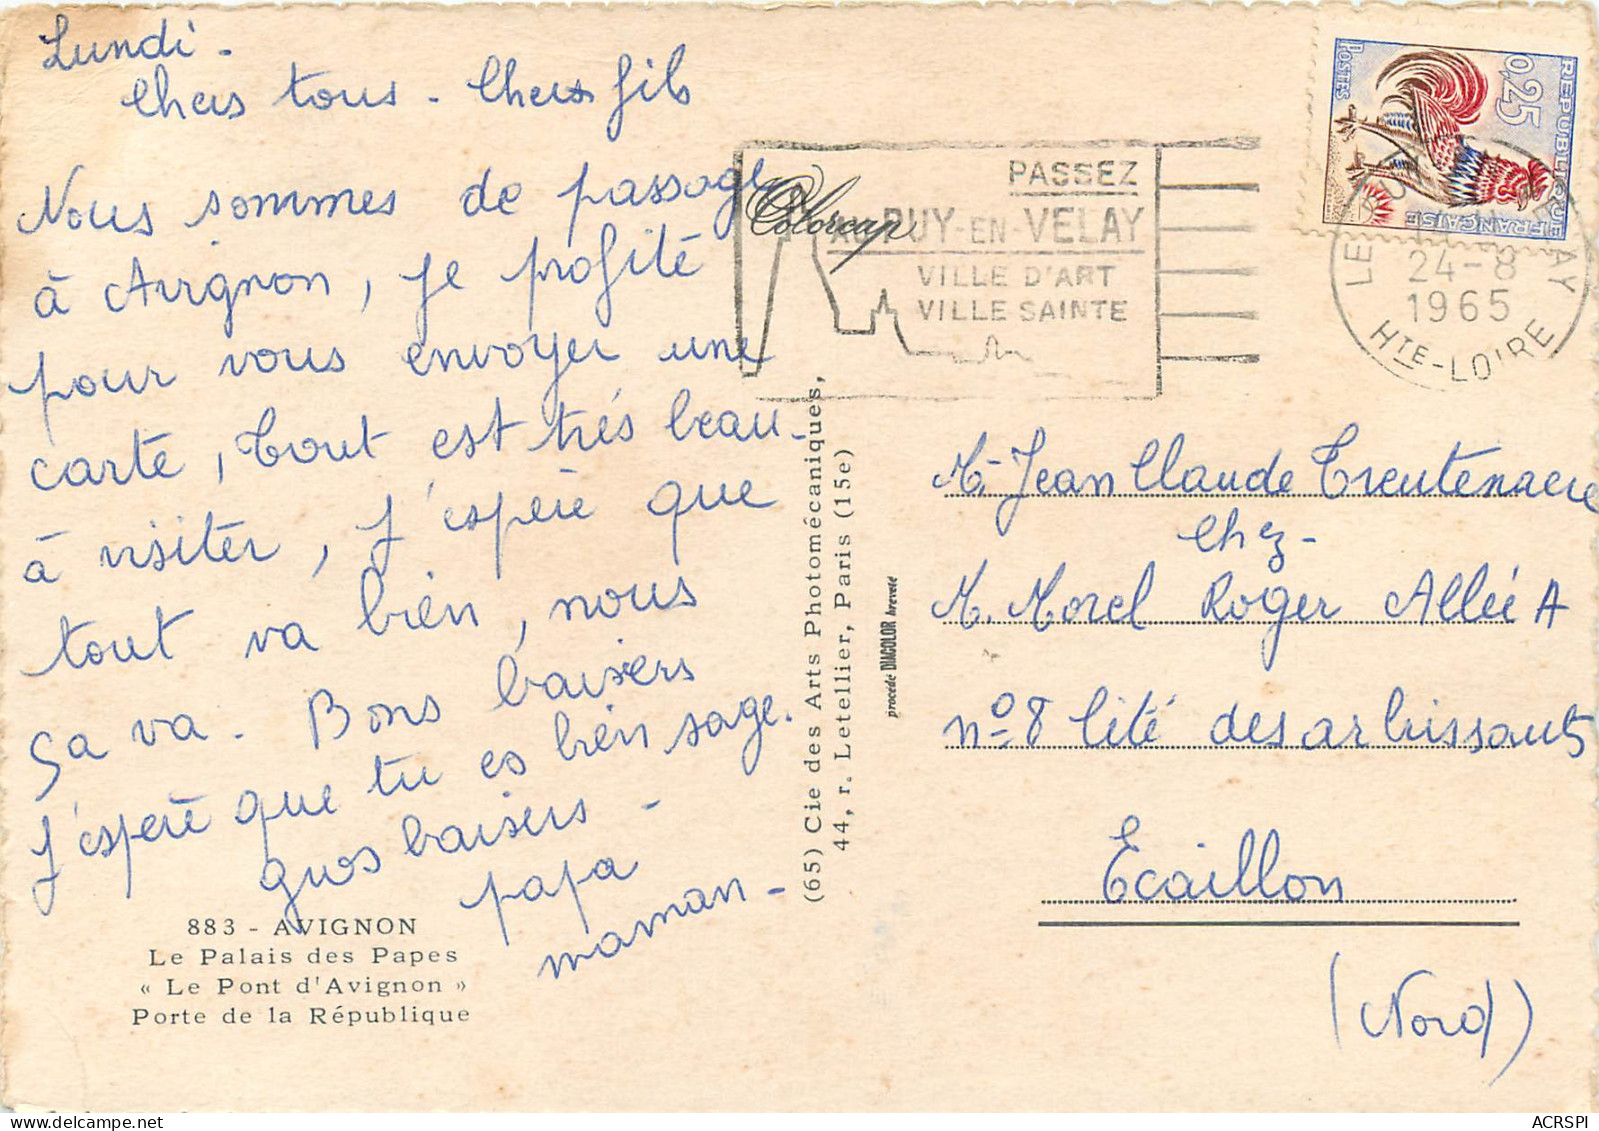 Lundi -
Chers tous - Cher fils
Nous sommes de passage
à Avignon, je profite
pour vous envoyer une
carte, tout est très beau
à visiter, j'espère que
tout va bien, nous
ça va. Bons baisers
J'espère que tu es bien sage.
gros baisers -
papa
maman -
883 - AVIGNON
Le Palais des Papes
« Le Pont d'Avignon »
Porte de la République
(65) Cie des Arts Photomécaniques,
44, r. Letellier, Paris (15e)
procédé DIACOLOR breveté
Colorcap
PASSEZ
AU PUY-EN-VELAY
VILLE D'ART
VILLE SAINTE
REPUBLIQUE FRANÇAISE
0,25
POSTES
LE PUY EN VELAY
24-8
1965
HTE-LOIRE
M. Jean Claude Treutenaere
chez -
M. Morel Roger Allée A
n° 8 Cité des arbrissauts
Ecaillon
(Nord)
ACRSPI